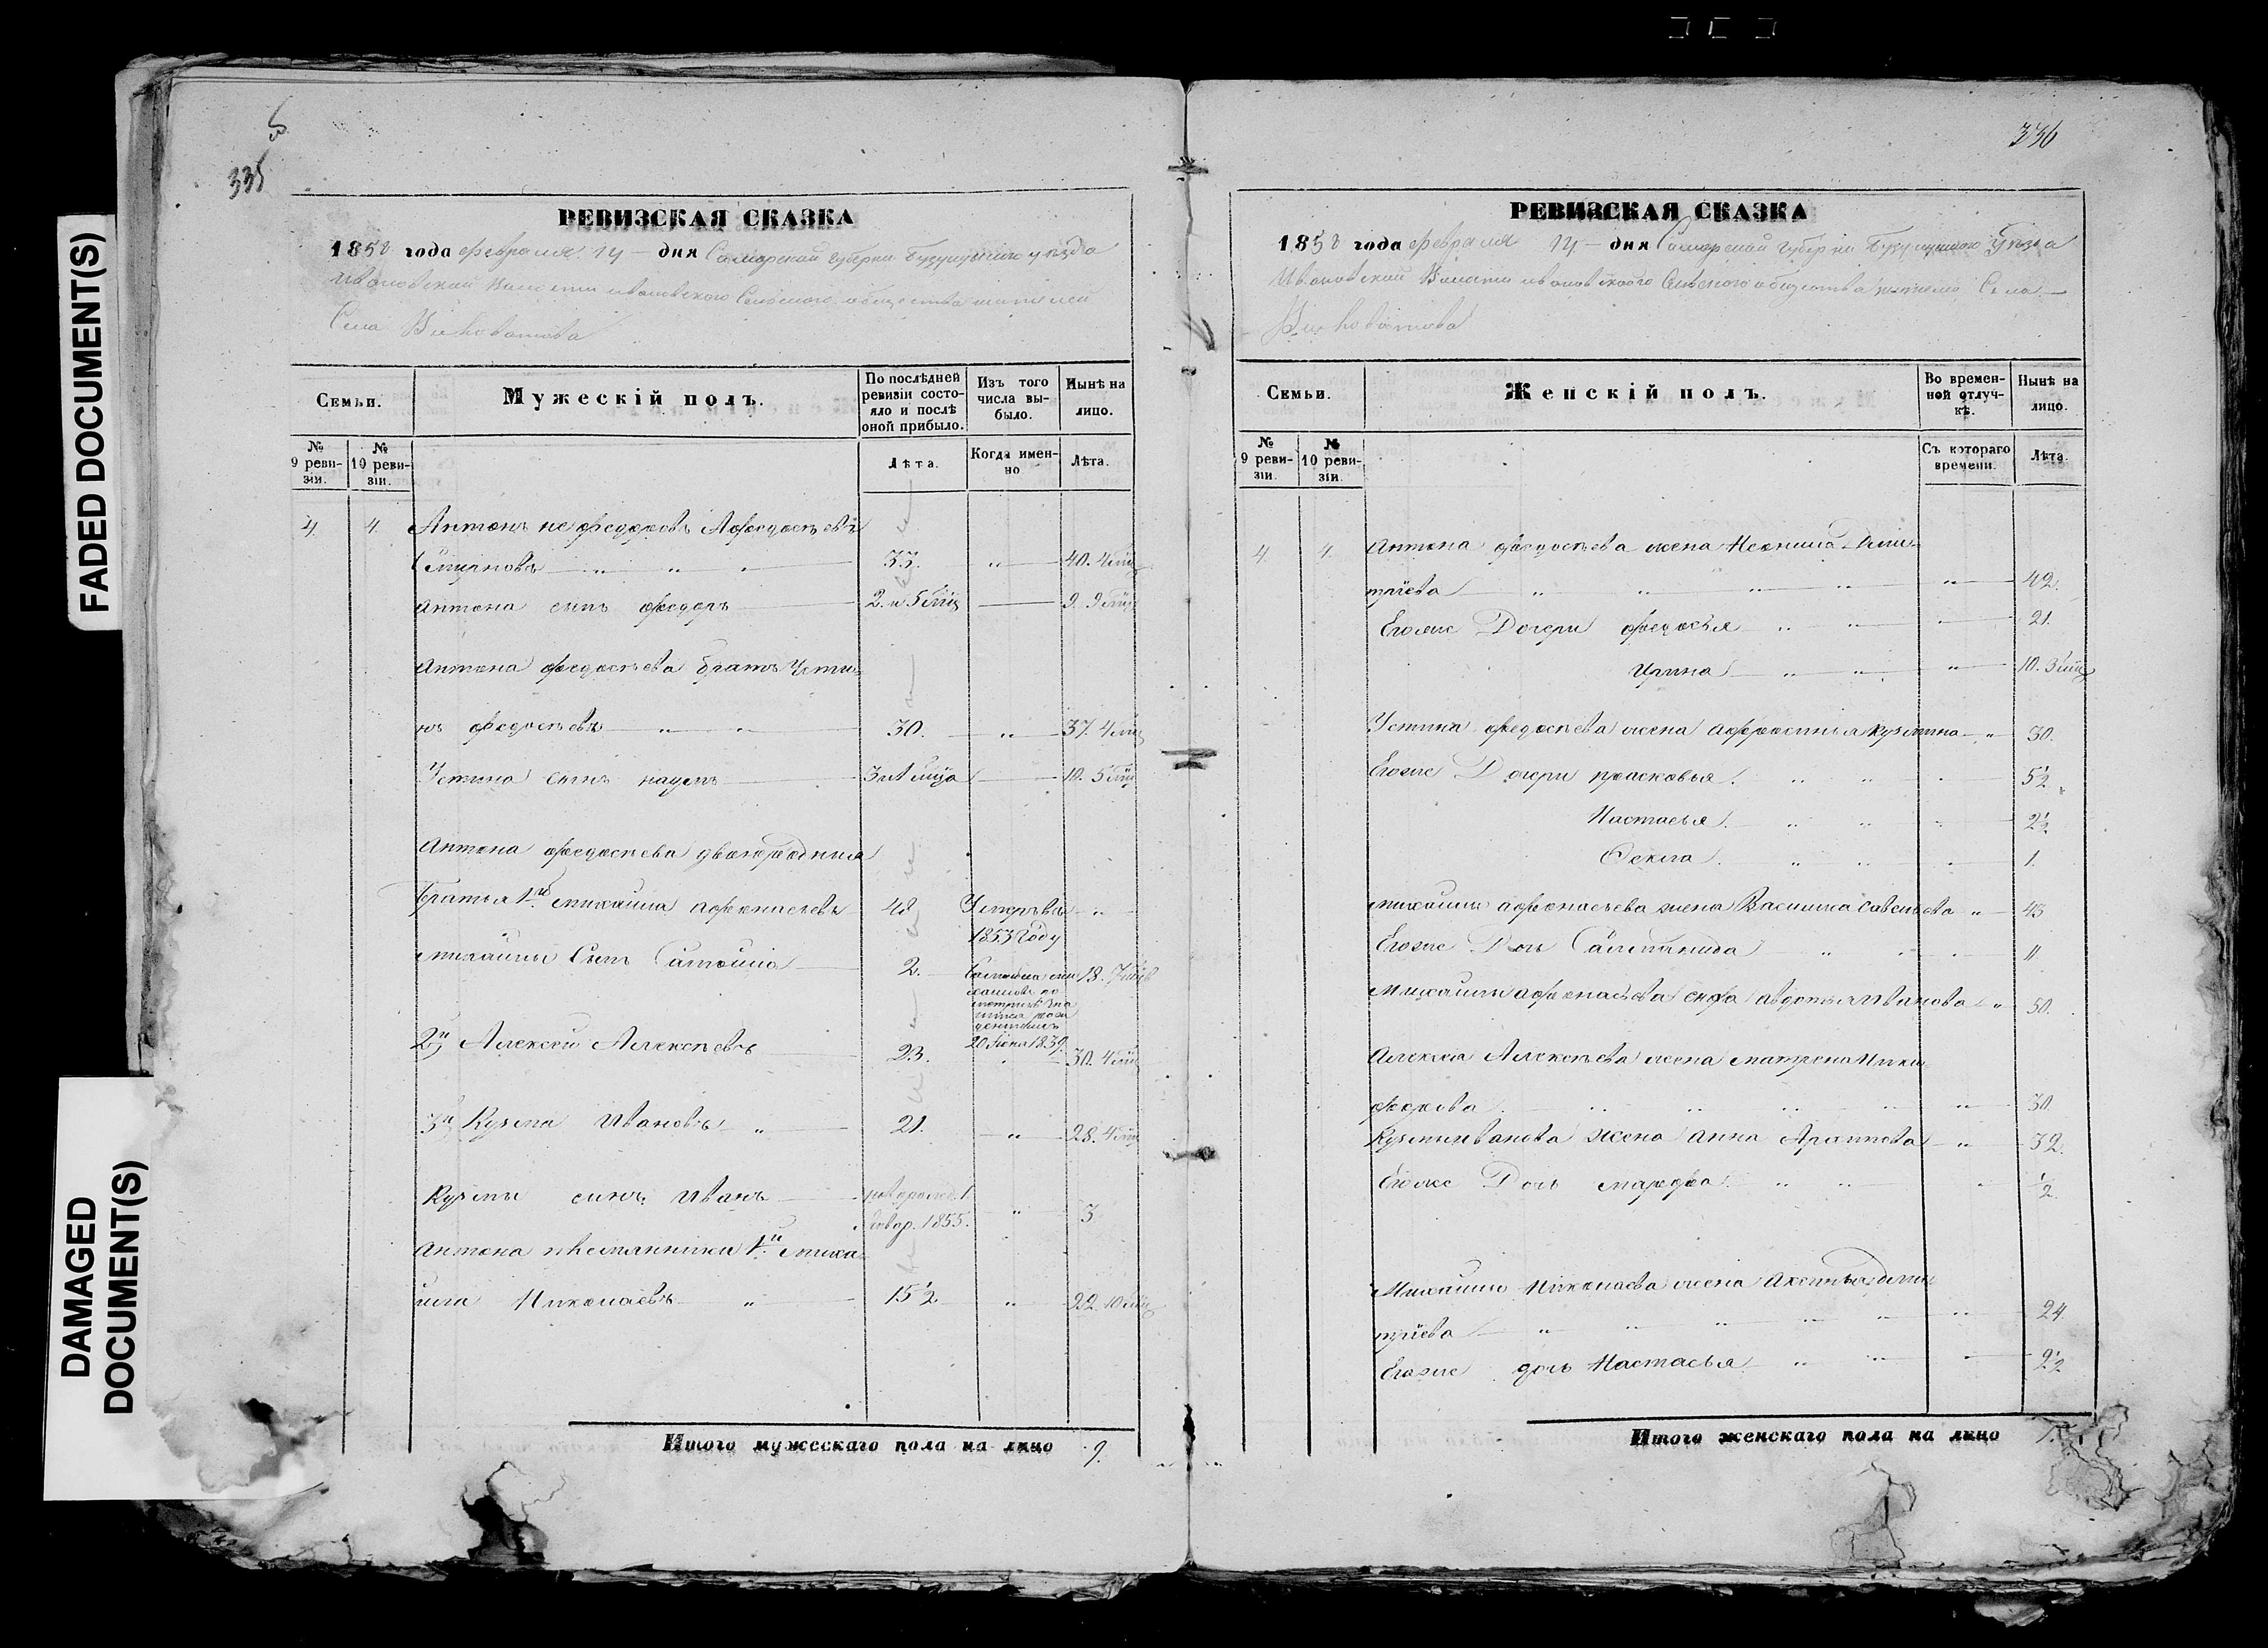 FADED DOCUMENT(S)
DAMAGED
DOCUMENT(S)
335
РЕВИЗСКАЯ СКАЗКА
1858 года февраля 14 дня Самарской губерніи Бузулукского уѣзда
Ивановской Волости ивановского Сельского общества жителей
Села
Семьи.
Мужескій полъ.
По послѣдней
ревизіи состо-
яло и послѣ
оной прибыло.
Изъ того
числа вы-
было.
Нынѣ на
лицо.
№
9 реви-
зіи.
№
10 реви-
зіи.
Лѣта.
Когда имен-
но
Лѣта.
4. 4. Антонъ не федоровъ А федосѣевъ
Смирновъ 33. 40. 4 мѣц
Антона сынъ федоръ 2. и 5 мѣц 9. 9 мѣц
Антона федосѣева братъ Усти-
нъ федосѣевъ 30. 37. 4 мѣц
Устина сынъ наумъ 10. 5 мѣц
Антона федосѣева двоюродныя
Братья 1й михаила афонасьевъ 48 Умеръ въ
1853 году
михайлы Сынъ Самойла 2. 18. 7
Самойла ми
хайловъ по
метрикѣ
20 1839
2й Алексей Алексѣевъ 23. 30. 4 мѣц
3й Кузма Ивановъ 21. 28. 4 мѣц
Кузмы сынъ Иванъ новорожд. 1.
1855. 3
Антона племянники 1й миха-
ила Николаевъ 15½ 22. 10 мѣц
Итого мужескаго пола на лицо 9.
336
РЕВИЗСКАЯ СКАЗКА
1858 года февраля 14 дня Самарской губерніи Бузулукского Уѣзда
Ивановской Волости ивановского Сельского общества жителей Села
Семьи.
Женскій полъ.
Во времен-
ной отлуч-
кѣ.
Нынѣ на
лицо.
№
9 реви-
зіи.
№
10 реви-
зіи.
Съ котораго
времени.
Лѣта.
4. 4. Антона федосѣева жена Неонила Дми-
тріева 42.
Егоже Дочери федосья 21.
Ирина 10. 3 мѣц
Устина федосѣева жена афросинья кузмина 30.
Егоже Дочери прасковья 5½
Настасья 2½
Фекла 1.
михайлы афонасьева жена Василиса Савельева 45
Егоже Дочь 11
Михайлы афонасьева сноха авдотья Иванова 50.
Алексея Алексѣева жена матрена Ники
форова 30.
Кузмы Иванова жена анна 32.
Егоже Дочь марфа ½
Михайлы Николаева жена Аксинья дми
тріева 24.
Егоже дочь Настасья 2½
Итого женскаго пола на лицо